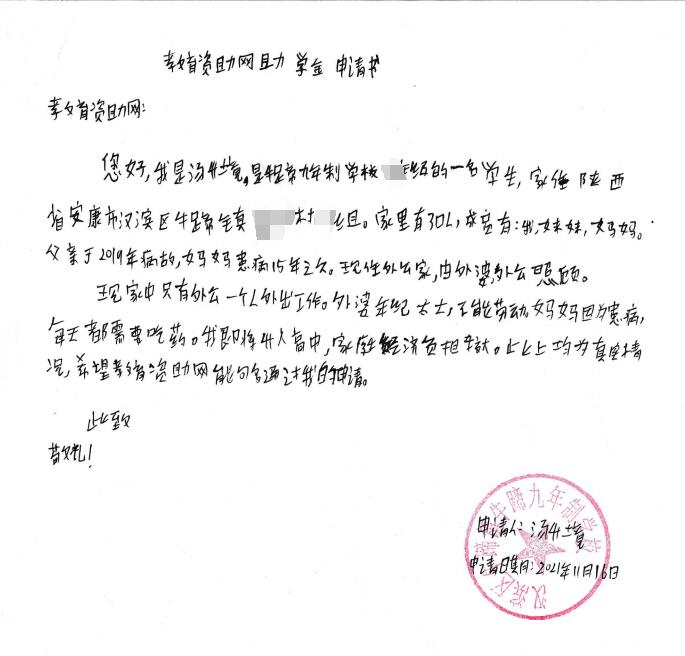 教育资助网助学金申请书
教育资助网:
您好,我是汤升境,是牛蹄九年制学校 年级的一名学生,家住陕西
省安康市汉滨区牛蹄镇 村 组。家里有3口人,成员有:我,妹妹,妈妈。
父亲于2019年病故,妈妈患病15年之久。现住外公家,由外婆外公照顾。
现家中只有外公一个人外出工作。外婆年纪太大,不能劳动,妈妈因为患病,
每天都需要吃药。我即将升入高中,家庭经济负担 。以上均为真实情
况,希望教育资助网能够通过我的申请。
此致
敬礼!
申请人:汤升境
申请日期:2021年11月16日
汉滨区 牛蹄九年制学校